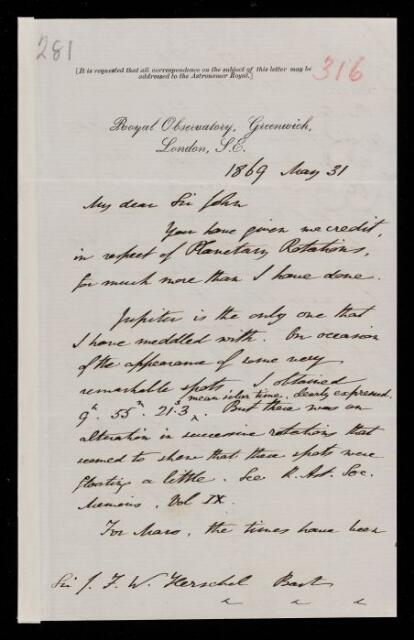 281
316
[It is requested that all correspondence on the subject of this letter may be
addressed to the Astronomer Royal.]
Royal Observatory, Greenwich,
London, S.E.
1869 May 31
My dear Sir John
You have given me credit,
in respect of Planetary Rotations,
for much more than I have done.
Jupiter is the only one that
I have meddled with. On occasion
of the appearance of some very
remarkable spots, I obtained
mean solar time, clearly expressed.
9h. 55m. 21s.3 ‸. But there was an
alteration in successive rotations that
seemed to show that these spots were
floating a little. See R. Ast. Soc.
Memoirs, Vol IX.
For Mars, the times have been
Sir J. F. W. Herschel Bart